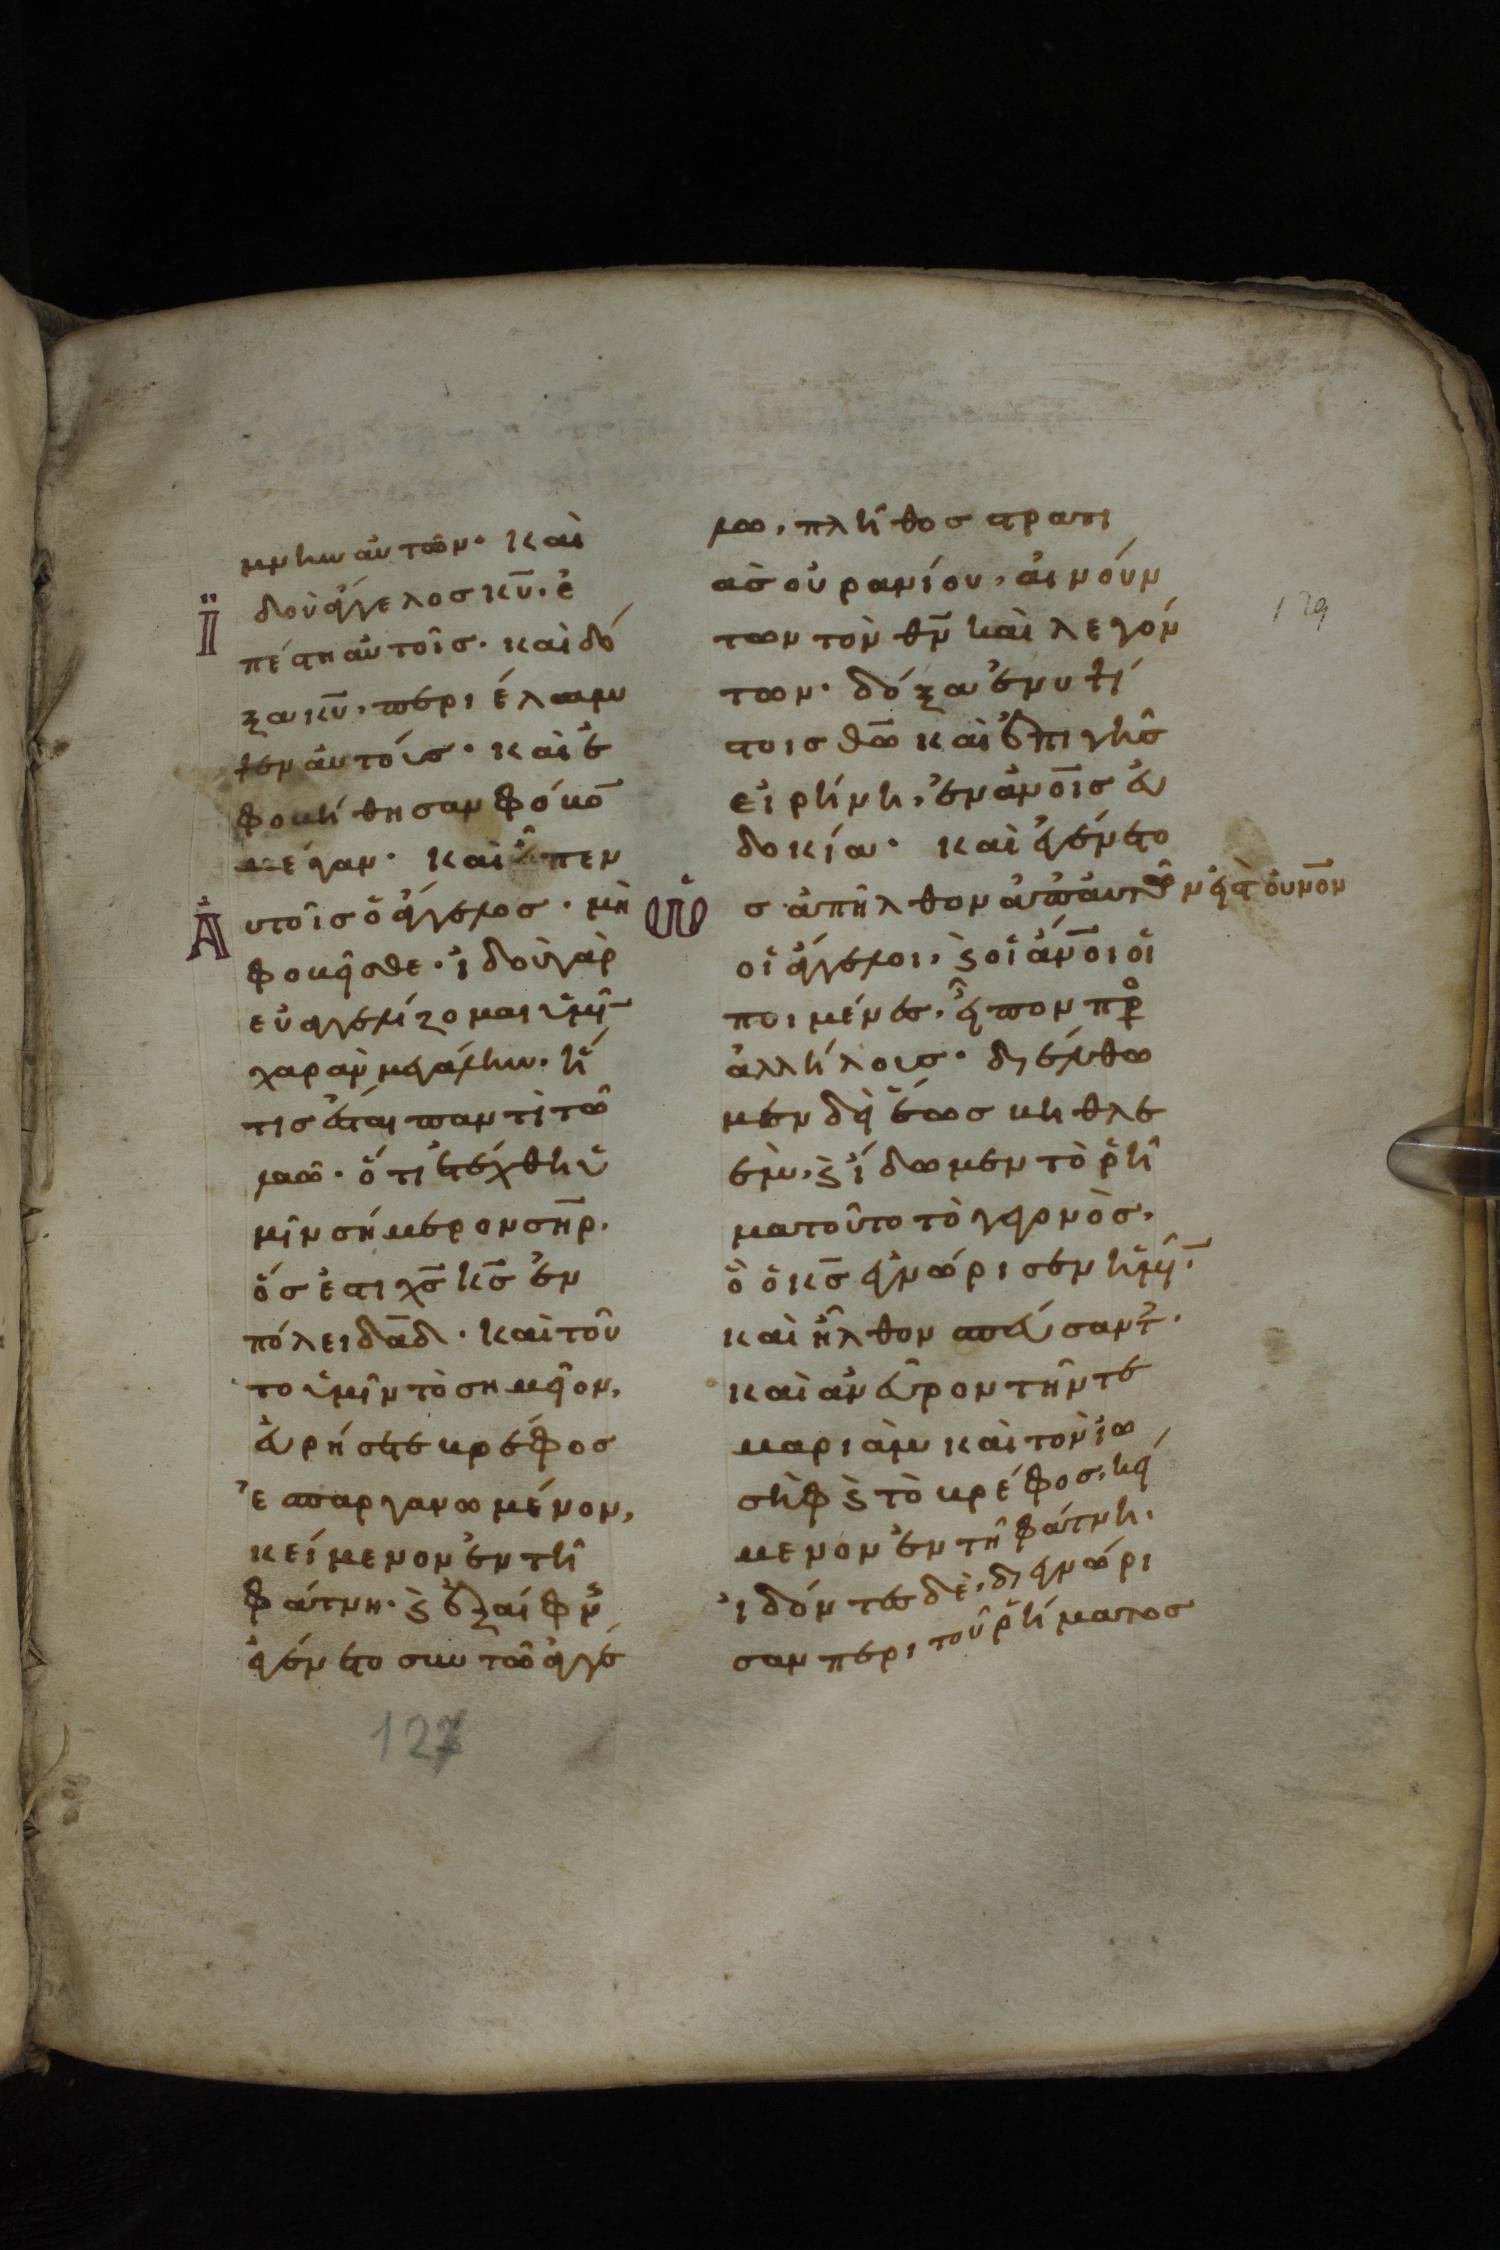 μνην αὐτῶν· καὶ
ἰδοὺ ἄγγελος κ̅υ̅· ἐ
πέστη αὐτοῖς· καὶ δό
ξα κ̅υ̅, περιέλαμ
ψεν αὐτούς· καὶ ἐ
φοβήθησαν φόβο̅
μέγαν· καὶ εἶπεν
αὐτοῖς ὁ ἄγγελος· μὴ
φοβεῖσθε· ἰδοὺ γὰρ
εὐαγγελίζομαι ὑμῖ̅
χαρὰν μεγάλην· ἥ
τις ἔσται παντὶ τῶ
λαῶ· ὅτι ἐτέχθη ὑ
μῖν σήμερον σ̅η̅ρ̅·
ὅς ἐστι χ̅ς̅ κ̅ς̅ ἐν
πόλει δ̅α̅δ̅· καὶ τοῦ
το ὑμῖν τὸ σημεῖον,
εὑρήσετε βρέφος
ἐσπαργανωμένον,
κείμενον ἐν τῆ
φάτνη· ϗ ἐξαίφν
ἐγένετο σὺν τῶ ἀγγέ
λω, πλῆθος στρατι
ας οὐρανίου, αἰνούν
των τὸν θ̅ν̅ καὶ λεγόν
των· δόξα ἐν ὑψί
στοις θ̅ω̅ καὶ ἐπὶ γῆς
εἰρήνη, ἐν ἀ̅ν̅ο̅ι̅ς εὐ
δοκία· καὶ ἐγένετο
ὡς ἀπῆλθον ἀπ' αὐτῶν εἰς τὸν οὐνον
οἱ ἄγγελοι, ϗ οἱ ἄ̅ν̅ο̅ι οἱ
ποιμένες, εἶπον πρ
ἀλλήλους· διέλθω
μεν δὴ ἕως βηθλε
ὲμ, ϗ ἴδωμεν τὸ ῥῆ
μα τοῦτο τὸ γεγονὸς,
ὃ ὁ κ̅ς̅ ἐγνώρισεν ἡμῖ̅·
καὶ ἦλθον σπεύσαντ·
καὶ ἀνεῦρον τήν τε
μαριὰμ καὶ τὸν ἰω
σὴφ ϗ τὸ βρέφος, κεί
μενον ἐν τῆ φάτνη·
ἰδόντες δὲ, διεγνώρι
σαν περὶ τοῦ ῥήματος
129
127